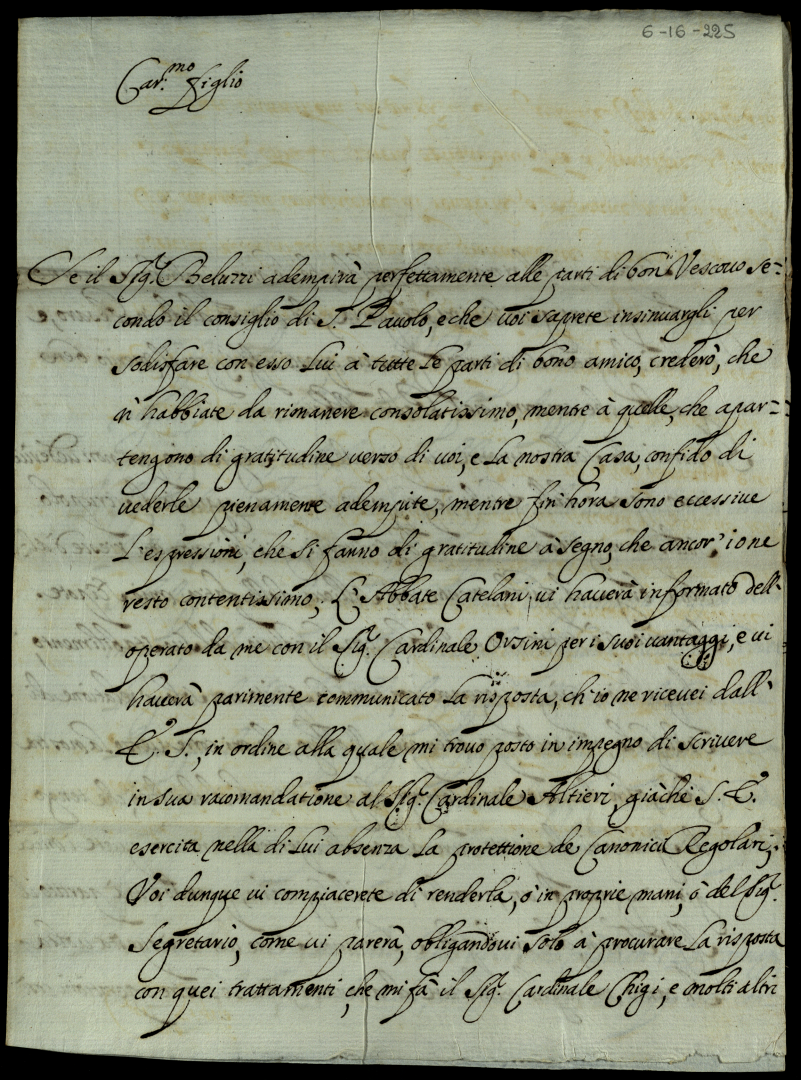 6-16-225
Car.mo figlio
Se il Sig.r Beluzzi adempirà perfettamente alle parti di bon Vescouo se=
condo il consiglio di S. Pauolo, e che uoi saprete insinuargli per
sodisfare con esso lui à tutte le parti di bono amico, crederò, che
ui habbiate da rimanere consolatissimo, mentre à quelle, che apar=
tengono di gratitudine uerso di uoi, e la nostra Casa, confido di
uederle pienamente adempite, mentre fin'hora sono eccessiue
l'espressioni, che si fanno di gratitudine à segno, che ancor'io ne
resto contentissimo; L'Abbate Catelani ui hauerà informato dell'
operato da me con il Sig.r Cardinale Orsini per i suoi uantaggi, e ui
hauerà parimente communicato la risposta, ch'io ne riceuei dall'
E. S., in ordine alla quale mi trouo posto in impegno di scriuere
in sua racomandatione al Sig.r Cardinale Altieri, giàche S. E.
esercita nella di lui absenza la protettione de Canonici Regolari;
Voi dunque ui compiacerete di renderla, ò in proprie mani, ò del Sig.r
Segretario, come ui parerà, obligandoui solo à procurare la risposta
con quei trattamenti, che mi fà il Sig.r Cardinale Chigi, e molti altri